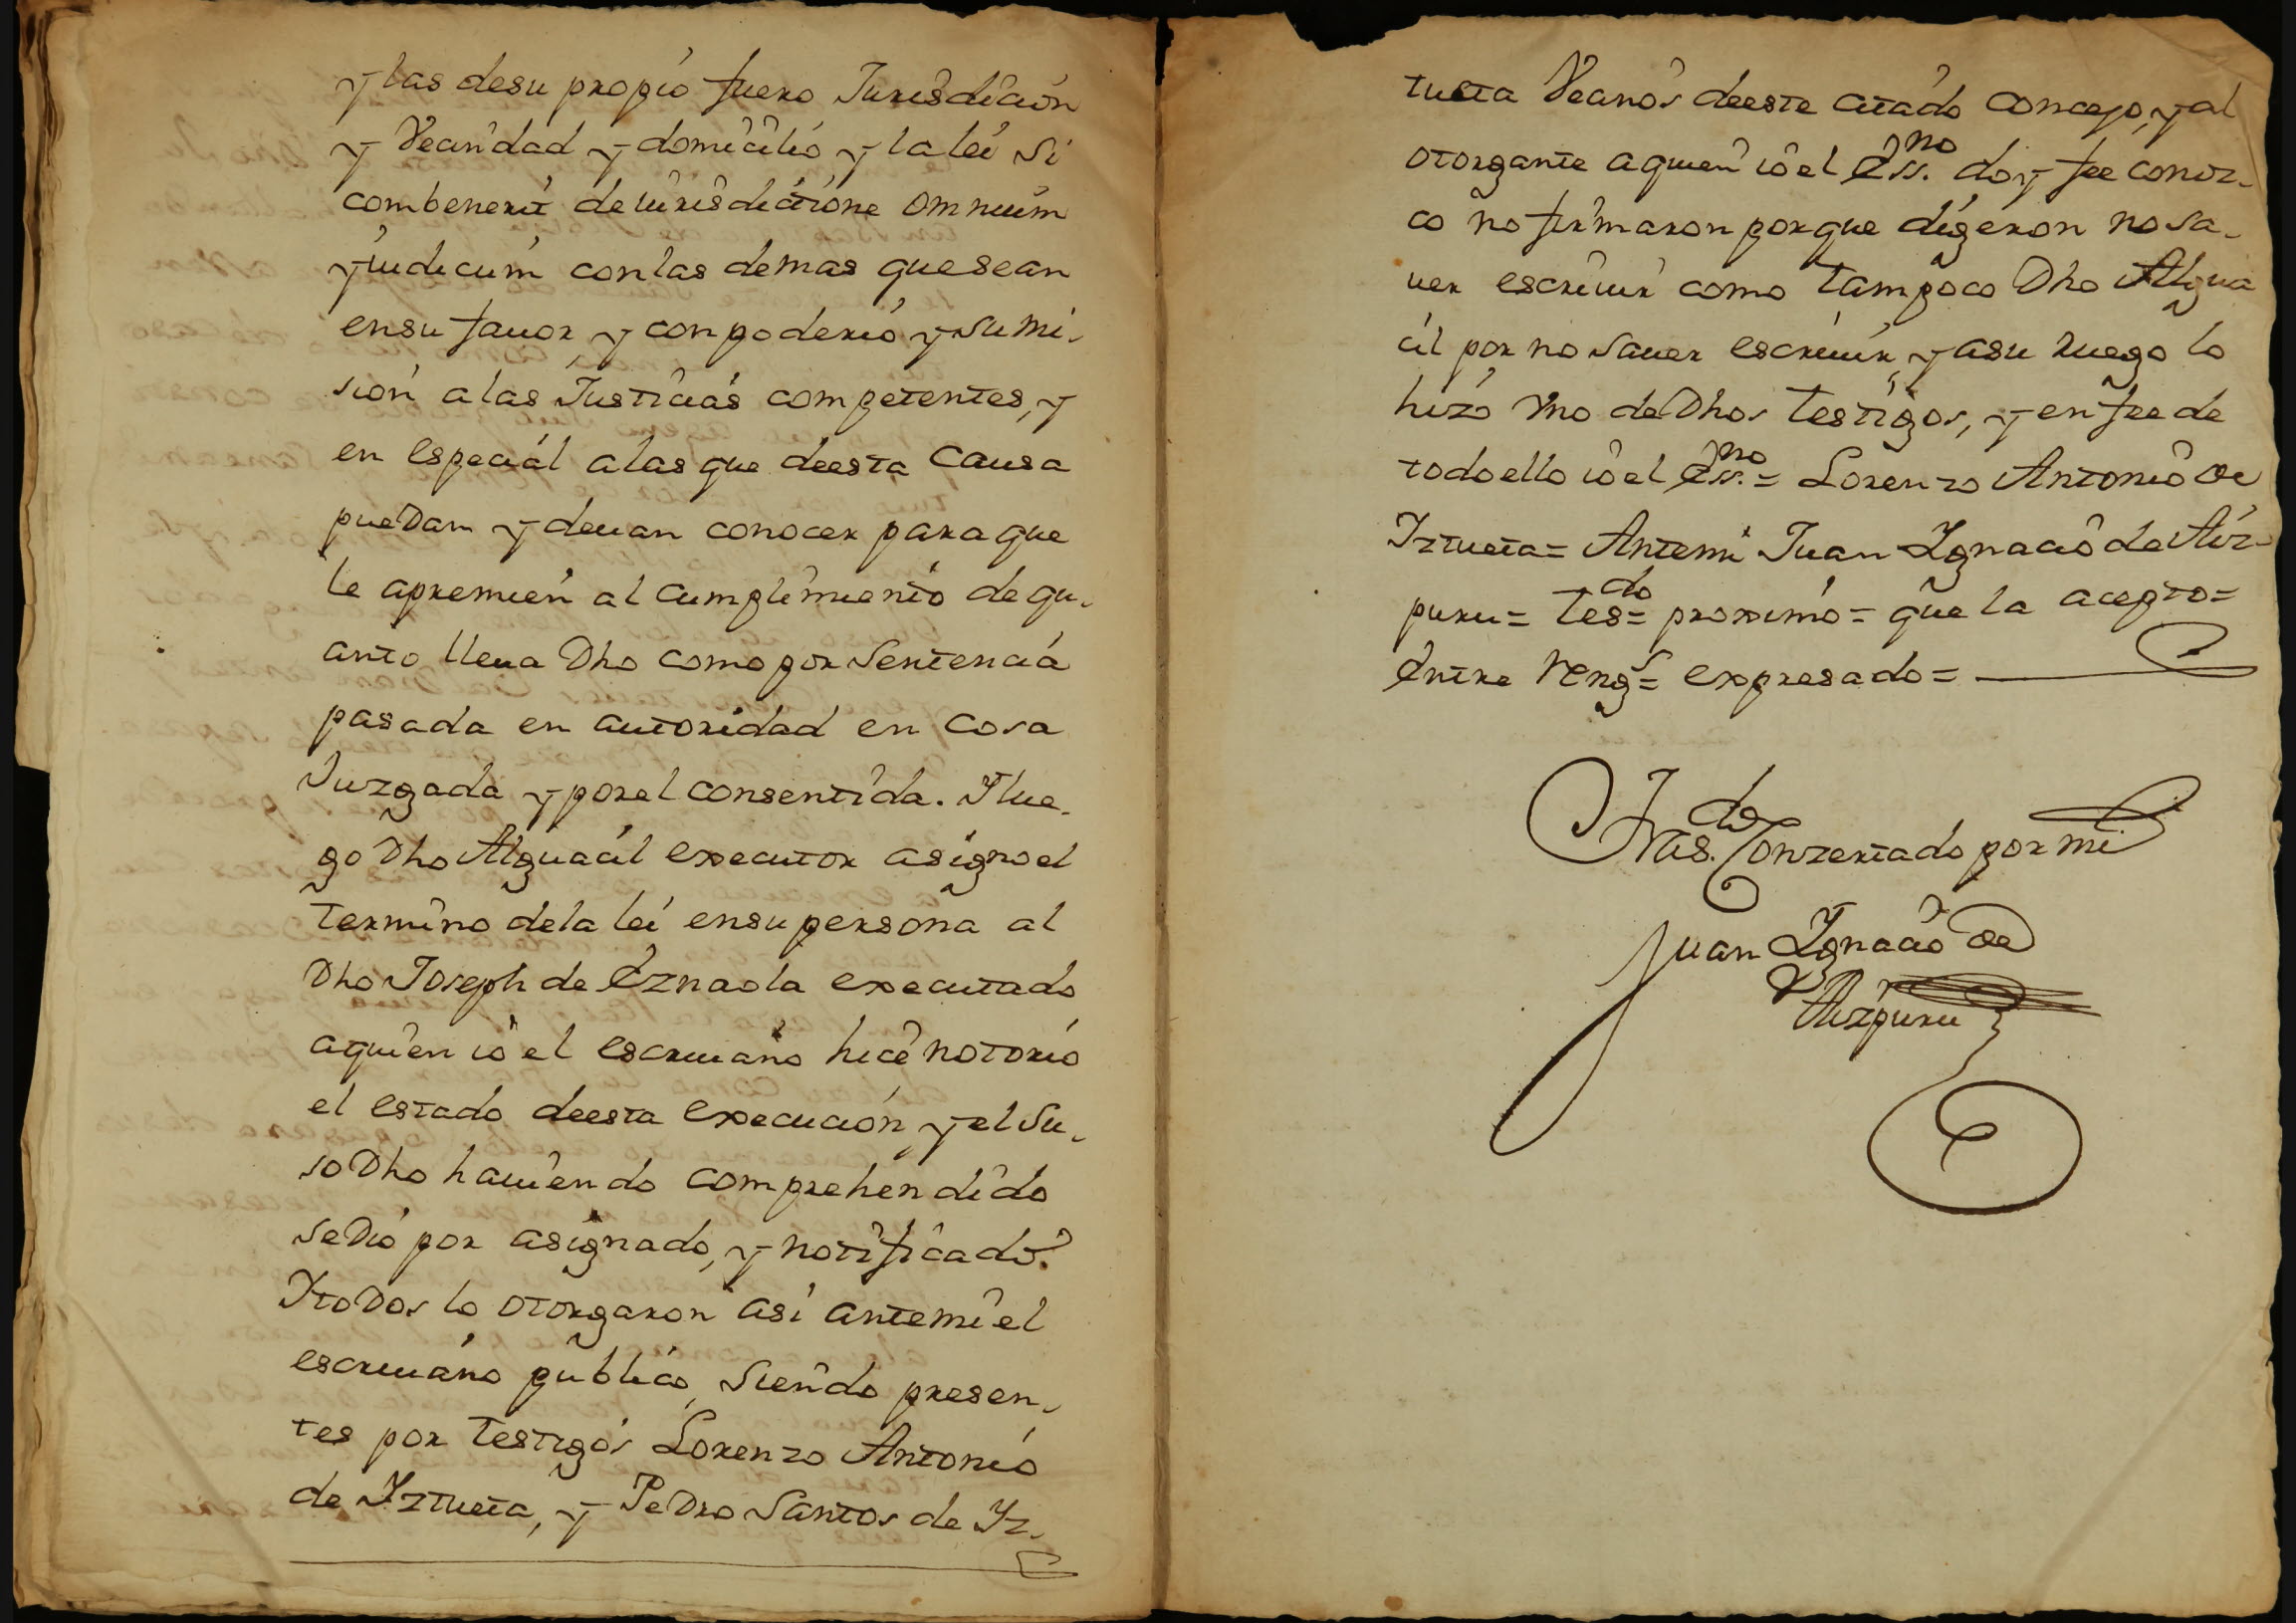 y las desu propio fuero Jurisdición
y Vecindad y domicilio y la lei si
combenerit de iurisdictione omnium
yudicum con las demas que sean
ensu fauor, y con poderio y sumi-
sion a las Justicias competentes, y
en especial a las que deesta Causa
puedan y deuan conocer para que
le apremien al cumplimiento de qu-
anto lleua Dho como por Sentencia
pasada en autoridad en Cosa
Juzgada y por el consentida. Ylue-
go Dho Alguacil executor asigno el
termino dela lei ensu persona al
Dho Joseph de Eznaola executado
aquien io el escriuano hice notorio
el estado deesta execución y el su-
so Dho hauiendo comprehendido
se Dio por asignado, y notificado.
Ytodos lo otorgaron asi antemi el
escriuano publico, siendo presen-
tes por testigos Lorenzo Antonio
de Yztueta, y Pedro Santos de Yz-
tueta Vecinos deeste citado concejo, y al
otorgante aquien io el Ess.no doy fee conoz-
co no firmaron porque digeron no sa-
uer escriuir como tampoco Dho Algua
cil por no sauer escriuir, y asu ruego lo
hizo Vno de Dhos testigos, y en fee de
todo ello io el Ess.no = Lorenzo Antonio de
Yztueta = Antemi Juan Ygnacio de Aiz-
puru = tes.do = proximo = que la acepto =
Entre reng.s = expresado =
Tras.do Conzertado por mi
Juan Ygnacio de
Aizpuru